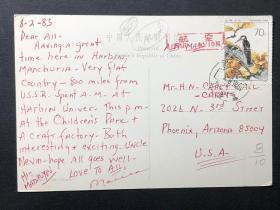 8-2-83
Dear All-
Having a great
time here in Harbin,
Manchuria - Very flat
Country - 800 miles from
U.S.S.R. Spent A.M. at
Harbin Univer. This p.m.
at the Children's Park +
A craft factory. Both
interesting + exciting. Uncle
Melvin - hope All goes Well-
Love To All,
Hi,
中国人民邮政明信片
People's Republic of China
航空
PAR AVION
70分
Mr. H.N.
2026 N- 3rd Street
Phoenix, Arizona 85004
U.S.A.
8
10